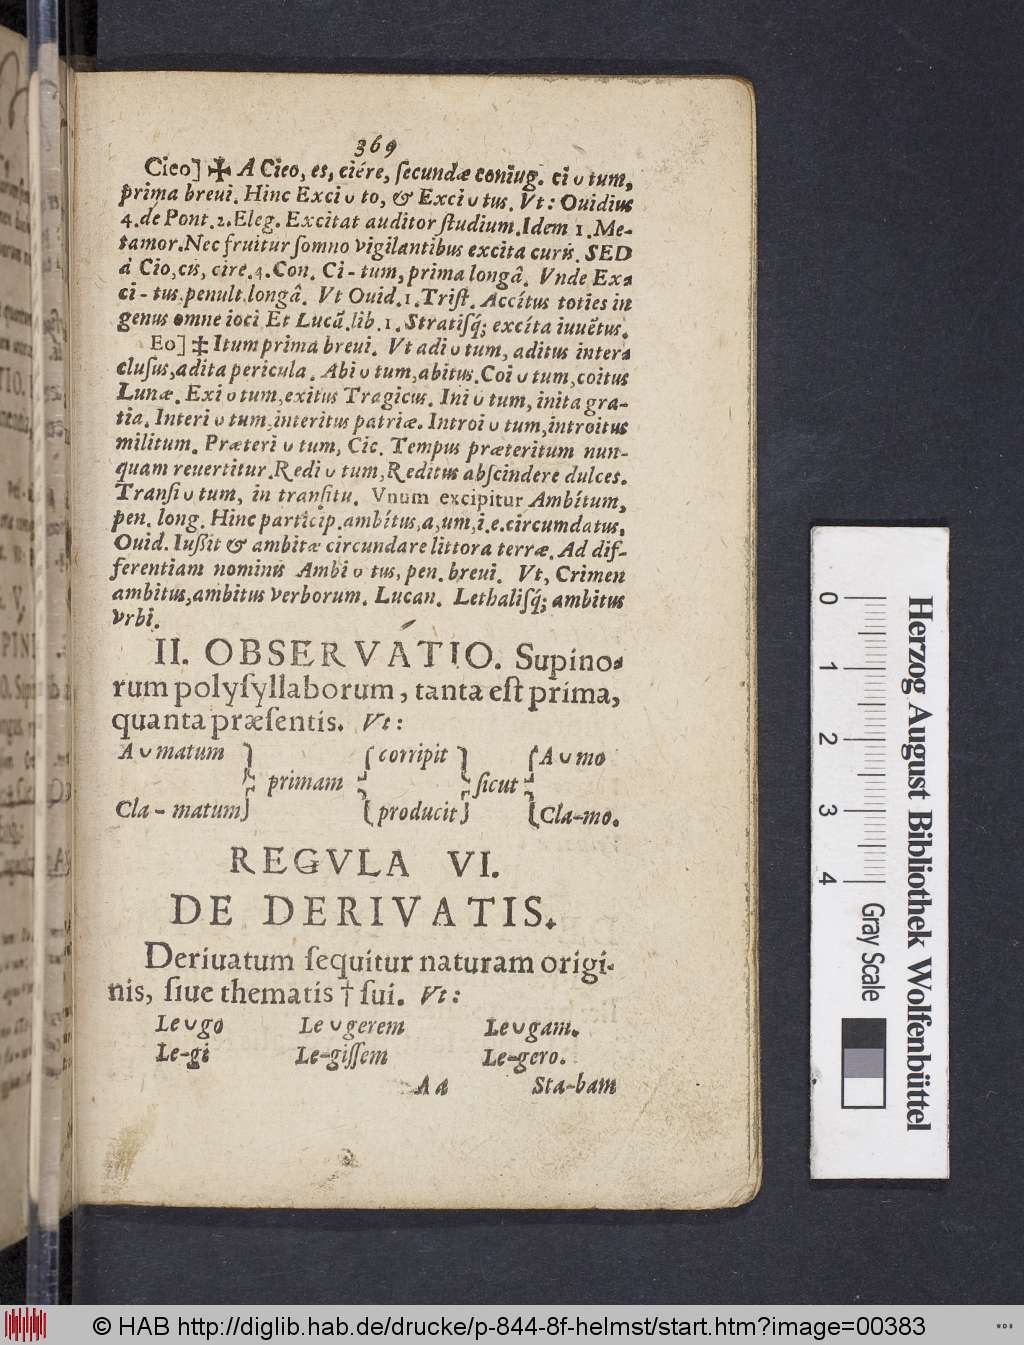 369
Cieo] ✠ A Cieo, es, ciére, ſecundæ coniug. ci ᴗ tum,
prima breui. Hinc Exci ᴗ to, & Exci ᴗ tus. Vt: Ouidius
4. de Pont. 2. Eleg. Excitat auditor ſtudium. Idem 1. Me-
tamor. Nec fruitur ſomno vigilantibus excita curis. SED
à Cio, cis, cire. 4. Con. Ci - tum, prima longâ. Vnde Ex-
ci - tus. penult. longâ. Vt Ouid. 1. Triſt. Accítus toties in
genus omne ioci Et Lucã. lib. 1. Stratiſq́; excíta iuuẽtus.
Eo] ‡ Itum prima breui. Vt adi ᴗ tum, aditus inter-
cluſus, adita pericula. Abi ᴗ tum, abitus. Coi ᴗ tum, coitus
Lunæ. Exi ᴗ tum, exitus Tragicus. Ini ᴗ tum, inita gra-
tia. Interi ᴗ tum, interitus patriæ. Introi ᴗ tum, introitus
militum. Præteri ᴗ tum, Cic. Tempus præteritum nun-
quam reuertitur. Redi ᴗ tum, Reditus abſcindere dulces.
Tranſi ᴗ tum, in tranſitu. Vnum excipitur Ambítum,
pen. long. Hinc particip. ambítus, a, um, i. e. circumdatus,
Ouid. Iußit & ambitæ circundare littora terræ. Ad dif-
ferentiam nominis Ambi ᴗ tus, pen. breui. Vt, Crimen
ambitus, ambitus verborum. Lucan. Lethaliſq́; ambitus
vrbi.
II. OBSERVATIO. Supino-
rum polyſyllaborum, tanta eſt prima,
quanta præſentis. Vt:
A ᴗ matum } primam { corripit } ſicut { A ᴗ mo
Cla - matum } { producit } { Cla-mo.
REGVLA VI.
DE DERIVATIS.
Deriuatum ſequitur naturam origi-
nis, ſiue thematis † ſui. Vt:
Le ᴗ go Le ᴗ gerem Le ᴗ gam.
Le-gi Le-giſſem Le-gero.
A a Sta-bam
Herzog August Bibliothek Wolfenbüttel
0 1 2 3 4
Gray Scale
© HAB http://diglib.hab.de/drucke/p-844-8f-helmst/start.htm?image=00383